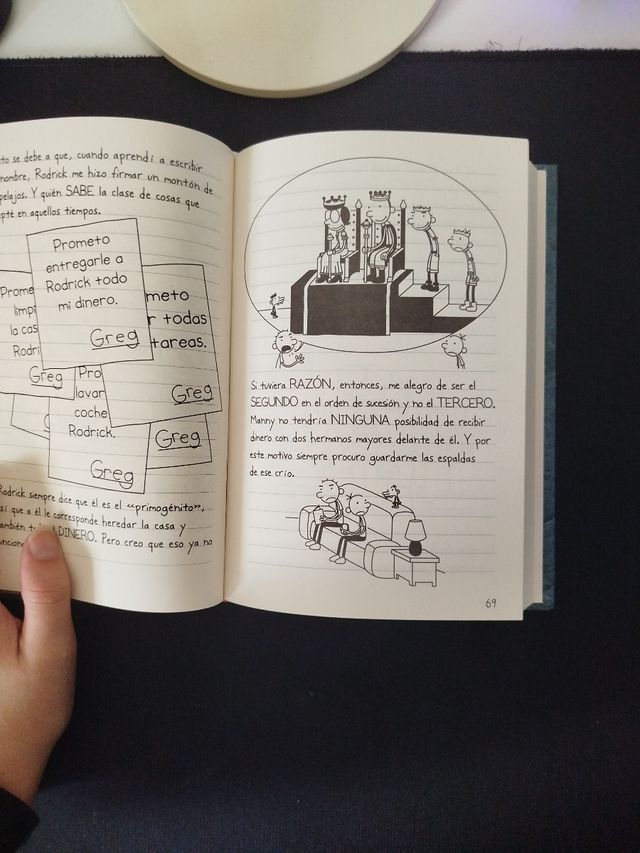 to se debe a que, cuando aprendí a escribir
nombre, Rodrick me hizo firmar un montón de
pelajos. Y quién SABE la clase de cosas que
epté en aquellos tiempos.
Prometo
entregarle a
Rodrick todo
mi dinero.
Greg
Prome
limpi
la cas
Rodri
Greg
meto
r todas
tareas.
Greg
Pro
lavar
coche
Rodrick.
Greg
Greg
Rodrick siempre dice que él es el «primogénito»,
sí que a él le corresponde heredar la casa y
también DINERO. Pero creo que eso ya no
funcion
Si tuviera RAZÓN, entonces, me alegro de ser el
SEGUNDO en el orden de sucesión y no el TERCERO.
Manny no tendría NINGUNA posibilidad de recibir
dinero con dos hermanos mayores delante de él. Y por
este motivo siempre procuro guardarme las espaldas
de ese crío.
69